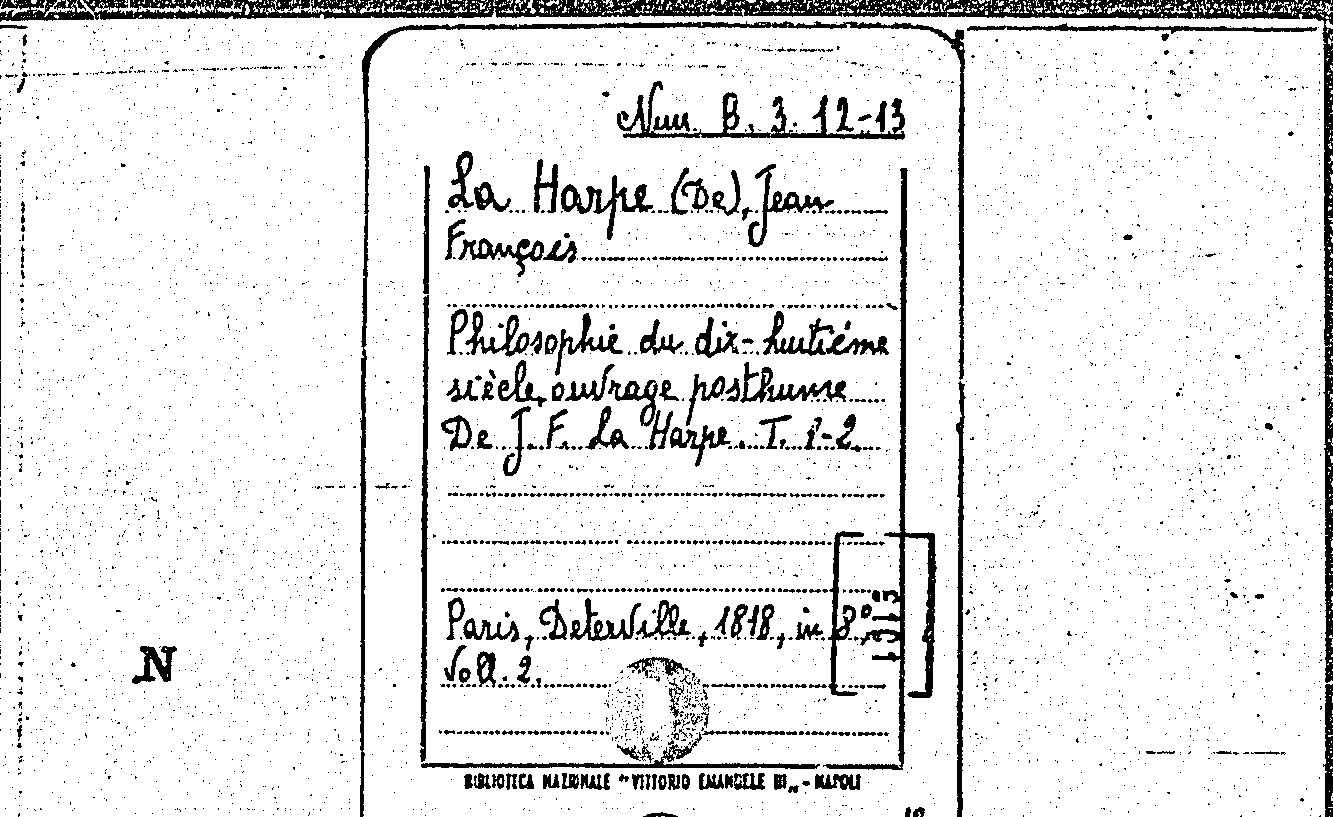 Nun. B. 3. 12-13
La Harpe (De), Jean
François
Philosophie du dix-huitiéme
siècle, ouvrage posthume
De J. F. La Harpe. T. 1-2.
Paris, Deterville, 1818, in 8°,
Voll. 2.
N
BIBLIOTECA NAZIONALE "VITTORIO EMANUELE III„ - NAPOLI